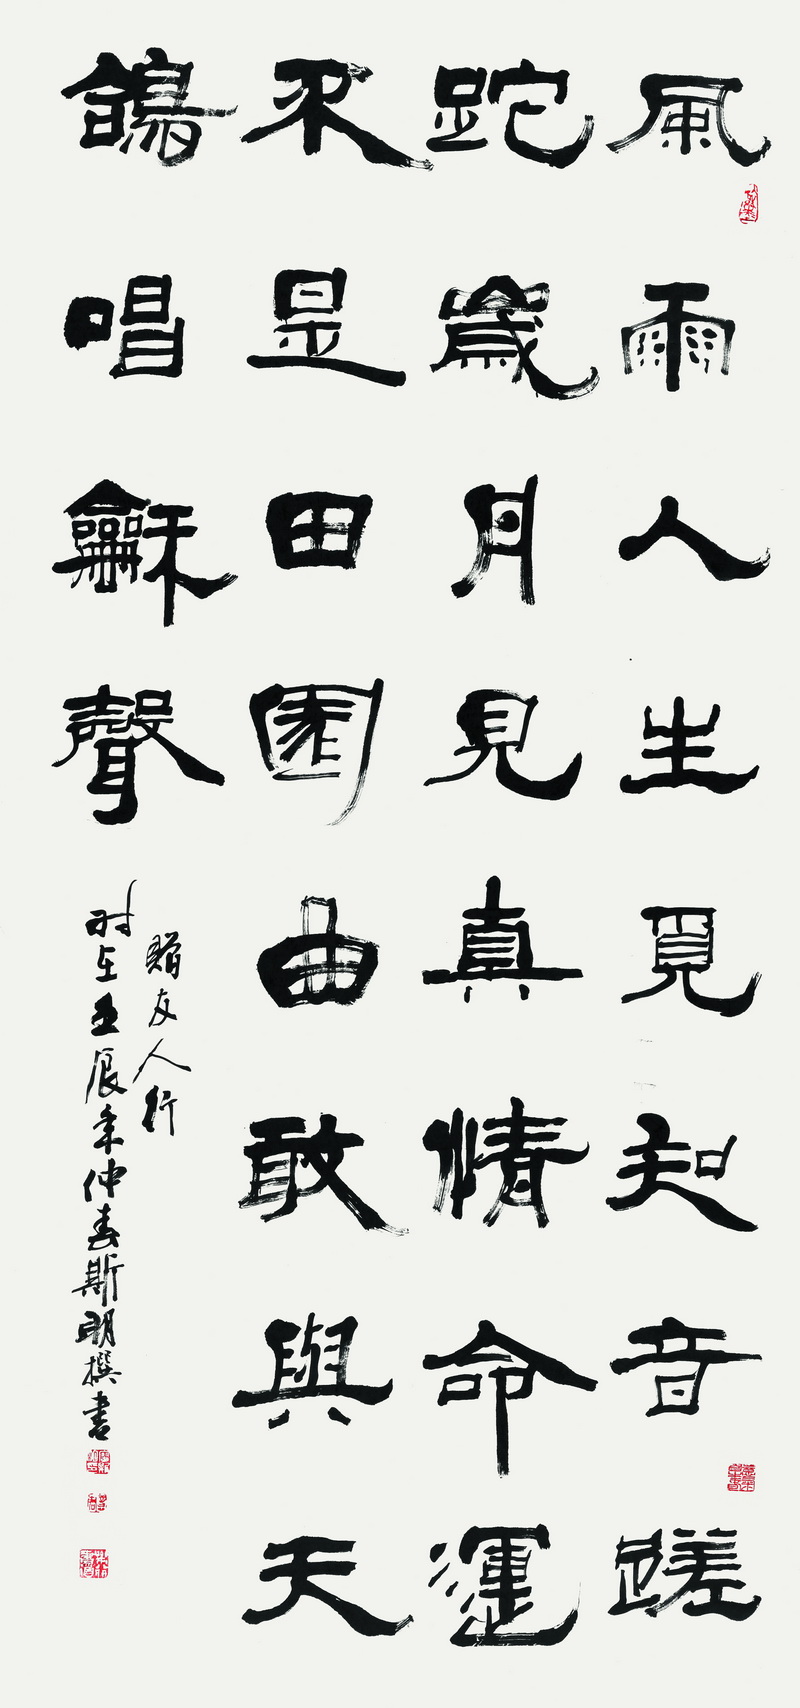 風雨人生覓知音蹉
跎歲月見真情命運
不是田園曲敢與天
鴿唱龢聲
贈友人行
时在壬辰年仲春斯明撰書